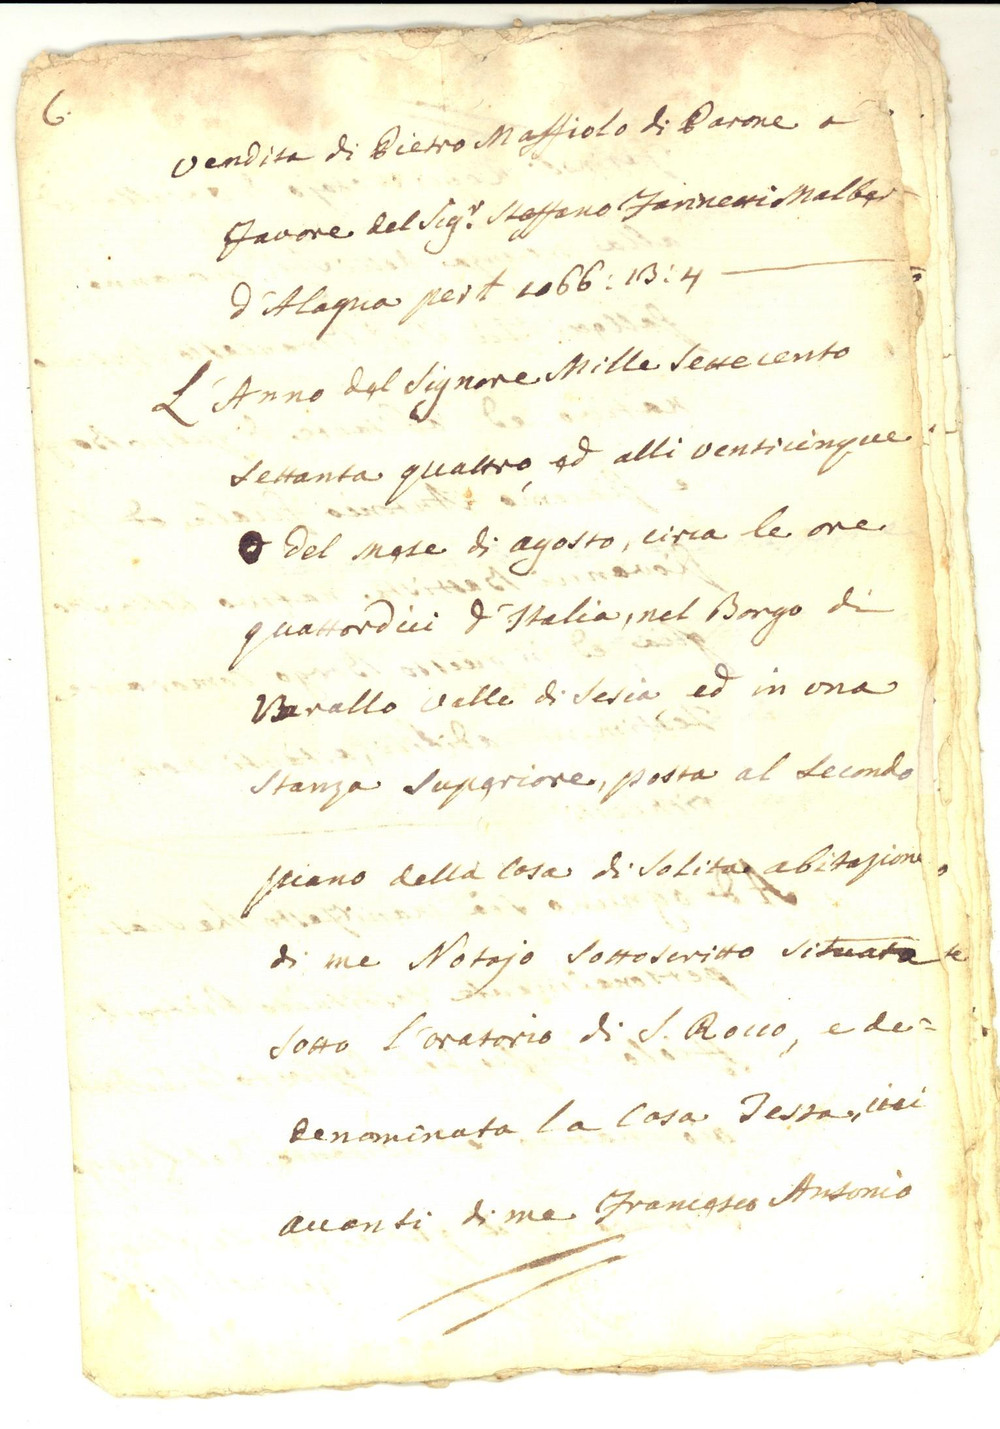 6.
Vendita di Pietro Maffiolo di Parone a
favore del Sig.r Steffano Jannetti Malber
d'Alagna per £ 1066:13:4
L'Anno del Signore Mille Settecento
Settanta quattro, ed alli venticinque
del mese di agosto, circa le ore
quattordici d'Italia, nel Borgo di
Varallo Valle di Sesia ed in una
stanza superiore, posta al secondo
piano della Casa di solita abitazione
di me Notajo sottoscritto situata
sotto l'oratorio di S. Rocco, e de=
denominata la Casa Testa, ivi
avanti di me Francesco Antonio